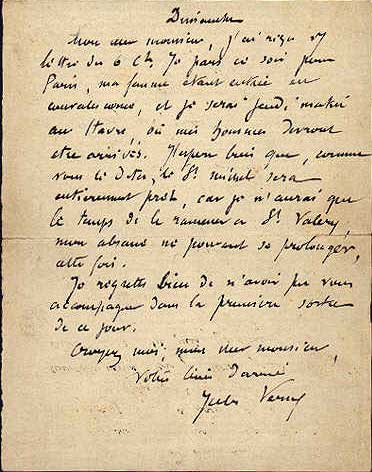 Dimanche
Mon cher monsieur, j'ai reçu v/
lettre du 6 Ct. Je pars ce soir pour
Paris, ma femme étant entrée en
convalescence, et je serai jeudi matin
au Havre, où mes hommes devront
être arrivés. J'espère bien que, comme
vous le dites, le St. Michel sera
entièrement prêt, car je n'aurai que
le temps de le ramener à St. Valery,
mon absence ne pouvant se prolonger,
cette fois.
Je regrette bien de n'avoir pu vous
accompagner dans la première sortie
de ce jour.
Croyez moi, mon cher monsieur,
Votre bien
Jules Verne